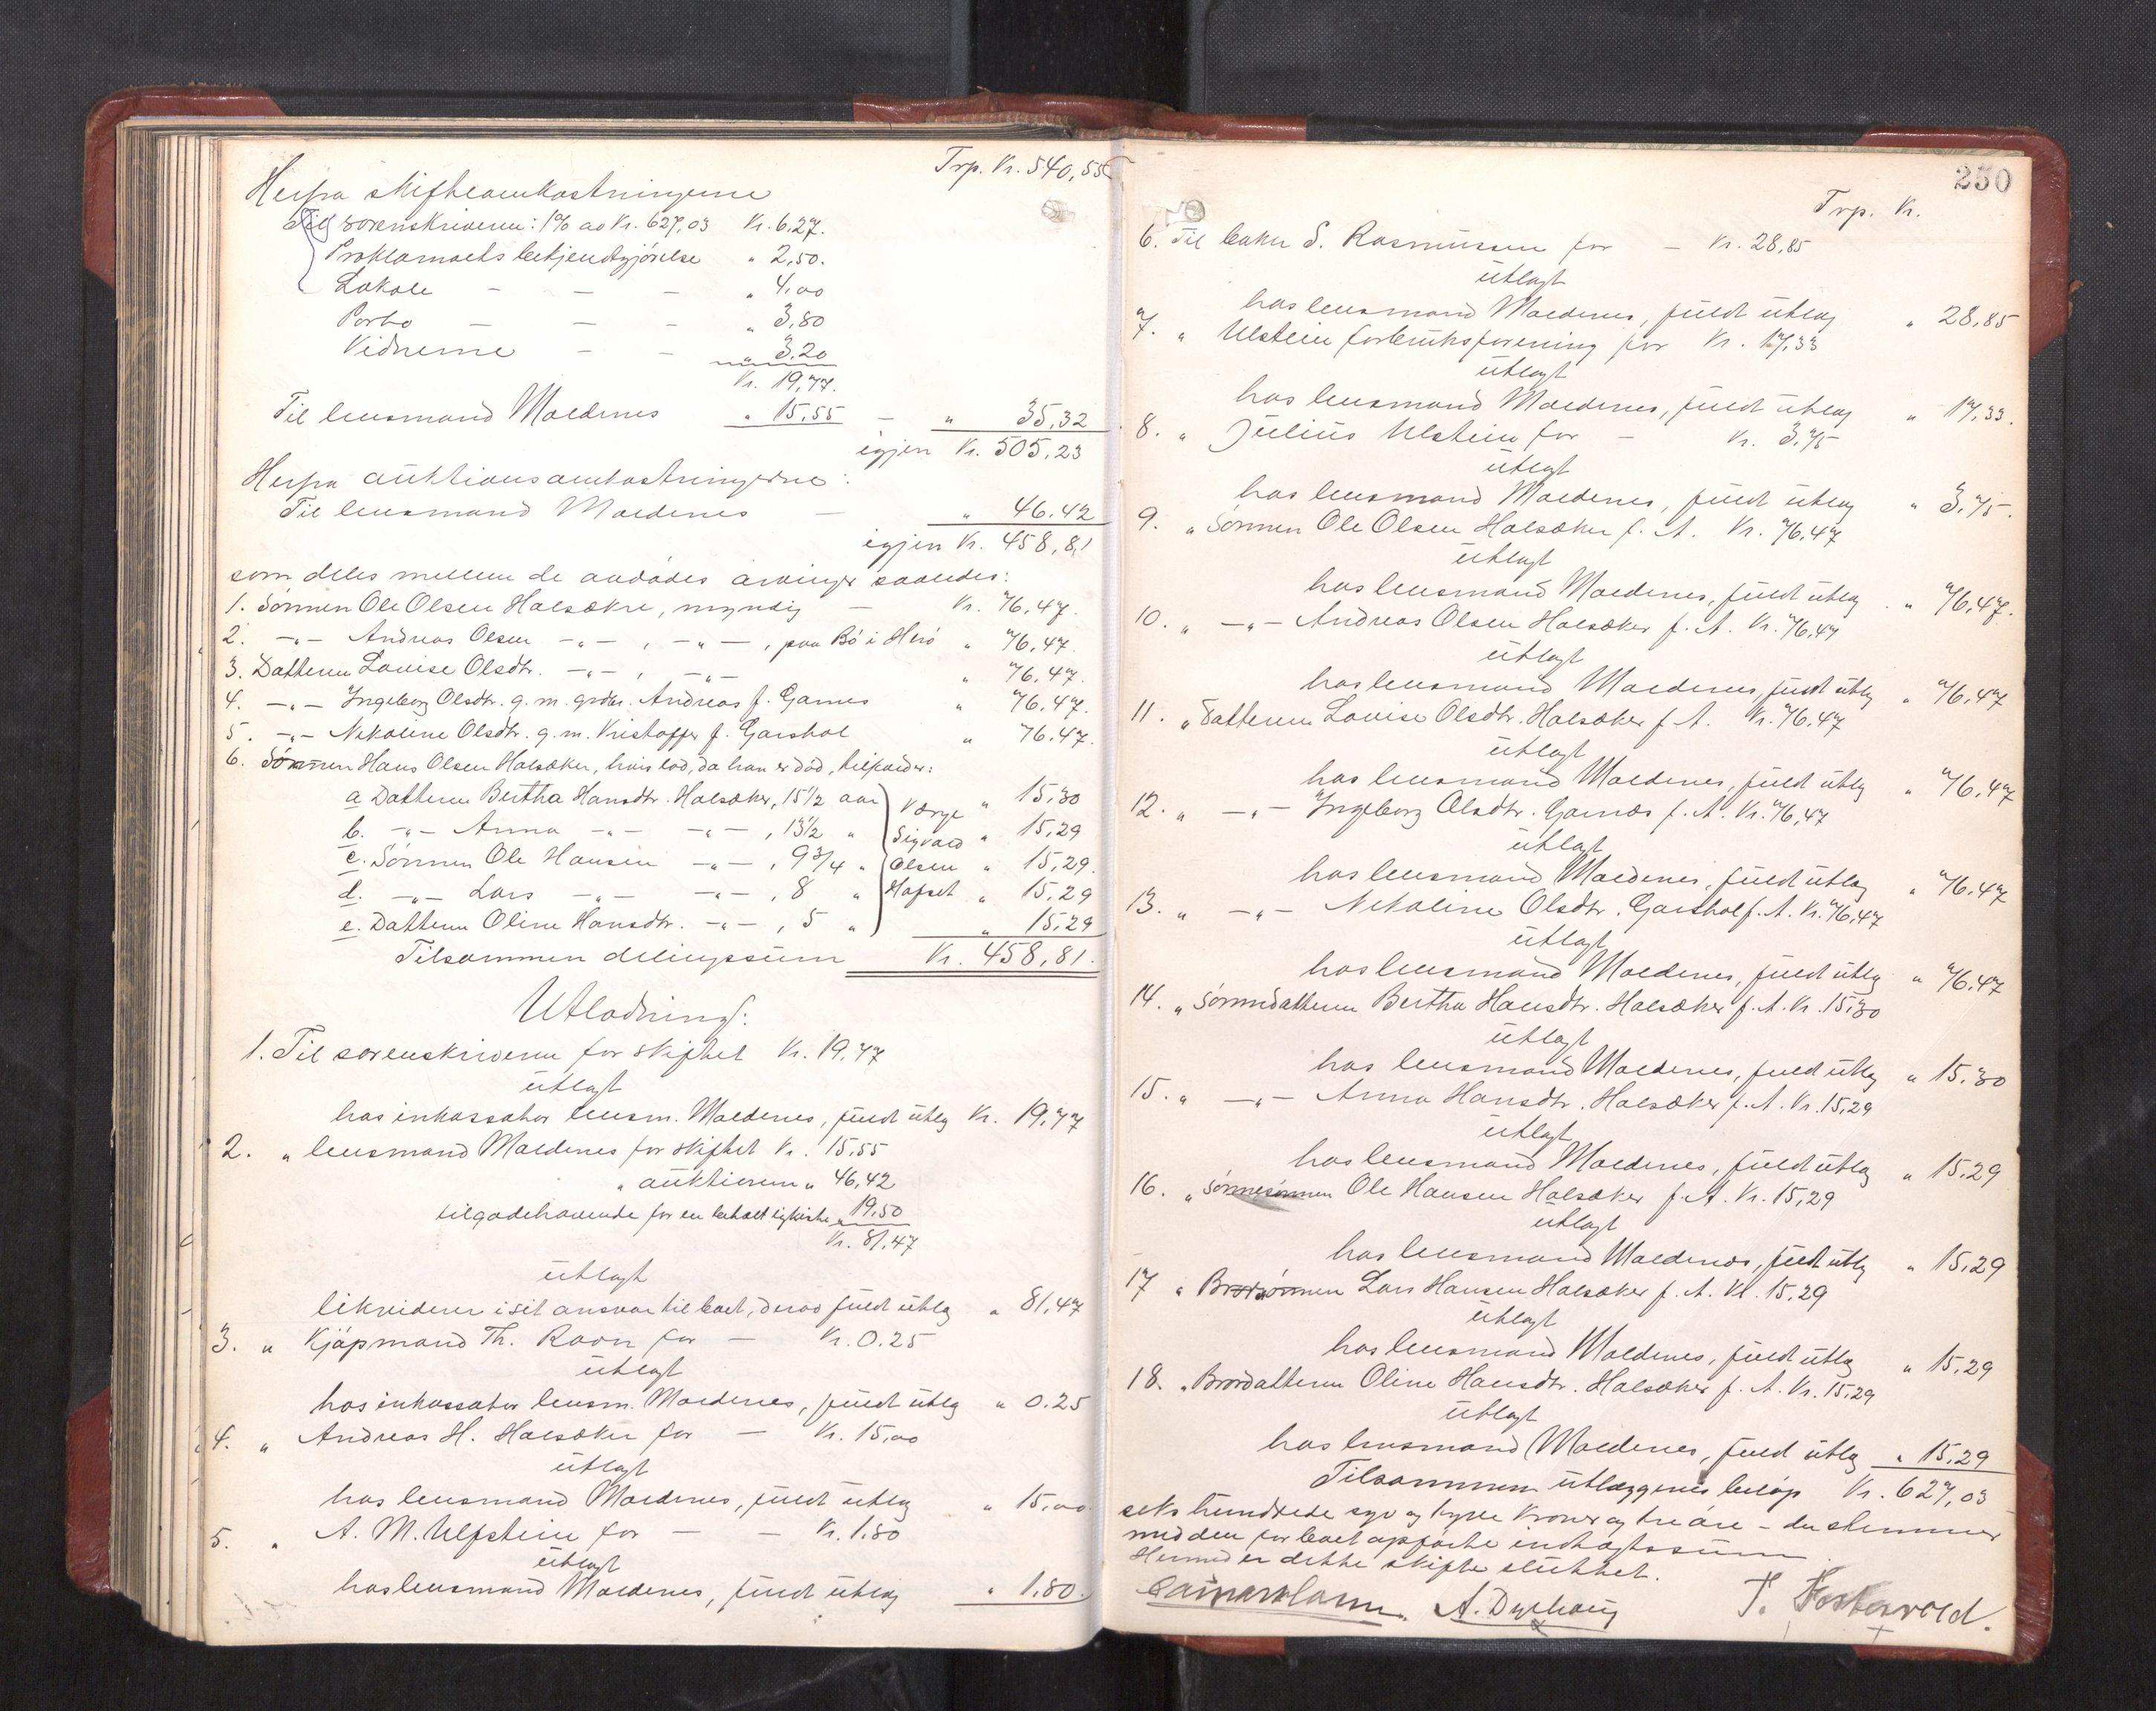 Trp. Kr. 540,55
Herfra skifteomkostningerne
Til sorenskriveren: 1% av Kr. 627,03 Kr. 6.27.
Proklamaets bekjendtgjörelse " 2,50.
Lokale - - - " 4,00
Porto - - - " 3,80
Vidnerne - - " 3.20
Kr. 19,77.
Til lensmand Moldenes " 15,55 - " 35,32
igjen Kr. 505,23
Herfra auktionsomkostningerne:
Til lensmand Moldenes - " 46.42
igjen Kr. 458,81
som deles mellem de avdødes arvinger saaledes:
1. Sönnen Ole Olsen Halsæker, myndig - Kr. 76,47.
2. -"- Andreas Olsen -"-, -"-, paa Bö i Herö " 76,47.
3. Datteren Lovise Olsdtr. -"-, -"- " 76,47.
4. -"- Ingeborg Olsdtr. g. m. grdbr. Andreas J. Garnes " 76,47.
5. -"- Nikoline Olsdtr. g. m. Kristoffer J. Garshol " 76.47.
6. Sönnen Hans Olsen Halsæker, hvis lod, da han er död, tilfalder:
a Datteren Bertha Hansdtr. Halsæker, 15 1/2 aar Værge " 15,30
b. -"- Anna -"- -"-, 13 1/2 " Sigvard " 15,29
c. Sönnen Ole Hansen -"-, 9 3/4 " Olsen " 15,29.
d. -"- Lars -"- -"-, 8 " Hofset " 15,29
e. Datteren Oline Hansdtr. -"-, 5 " " 15,29
Tilsammen delingssum Kr. 458,81.
Utlodning:
1. Til sorenskriveren for skiftet Kr. 19,77
utlagt
hos inkassator lensm. Moldenes, fuldt utlæg Kr. 19,77
2. " lensmand Moldenes for skiftet Kr. 15,55
" auktionen " 46,42
tilgodehavende for en betalt ligkiste " 19,50
Kr. 81,47
utlagt
likviderer i sit ansvar til boet, derav fuldt utlæg " 81,47
3. " Kjöpmand Th. Ravn for - Kr. 0.25
utlagt
hos inkassator lensm. Moldenes, fuldt utlæg " 0.25
4. " Andreas H. Halsæker for - Kr. 15,00
utlagt
hos lensmand Moldenes, fuldt utlæg " 15,00.
5. " A. M. Ulfstein for - - Kr. 1.80
utlagt
hos lensmand Moldenes, fuldt utlæg " 1.80.
250
Trp. Kr.
6. Til baker S. Rasmussen for - Kr. 28,85
utlagt
hos lensmand Moldenes, fuldt utlæg " 28,85
7. " Ulstein forbruksforening for Kr. 17,33
utlagt
hos lensmand Moldenes, fuldt utlæg " 17,33.
8. " Julius Ulstein for - Kr. 3,75
utlagt
hos lensmand Moldenes, fuldt utlæg " 3,75.
9. " Sönnen Ole Olsen Halsæker f. A. Kr. 76,47
utlagt
hos lensmand Moldenes, fuldt utlæg " 76,47.
10. " -"- Andreas Olsen Halsæker f. A. Kr. 76,47
utlagt
hos lensmand Moldenes, fuldt utlæg " 76,47
11. " Datteren Lovise Olsdtr. Halsæker f. A. Kr. 76,47
utlagt
hos lensmand Moldenes, fuldt utlæg " 76,47
12. " -"- Ingeborg Olsdtr. Garnes f. A. Kr. 76,47
utlagt
hos lensmand Moldenes, fuldt utlæg " 76,47
13. " -"- Nikoline Olsdtr. Garshol f. A. Kr. 76,47
utlagt
hos lensmand Moldenes, fuldt utlæg " 76,47
14. " Sönnedatteren Bertha Hansdtr. Halsæker f. A. Kr. 15,30
utlagt
hos lensmand Moldenes, fuldt utlæg " 15,30
15. " -"- Anna Hansdtr. Halsæker f. A. Kr. 15,29
utlagt
hos lensmand Moldenes, fuldt utlæg " 15,29
16. " Sönnesönnen Ole Hansen Halsæker f. A. Kr. 15,29
utlagt
hos lensmand Moldenes, fuldt utlæg " 15,29
17 " Brorsönnen Lars Hansen Halsæker f. A. Kr. 15,29
utlagt
hos lensmand Moldenes, fuldt utlæg " 15,29
18. " Brordatteren Oline Hansdtr. Halsæker f. A. Kr. 15,29
utlagt
hos lensmand Moldenes, fuld utlæg " 15,29
Tilsammen utlæggenes belöp Kr. 627,03
seks hundrede syv og tyve kroner og tre öre - der stemmer
med den for boet opförte indtægtssum.
Hermed er dette skifte sluttet.
A. Dyrhaug T. Fostervold.